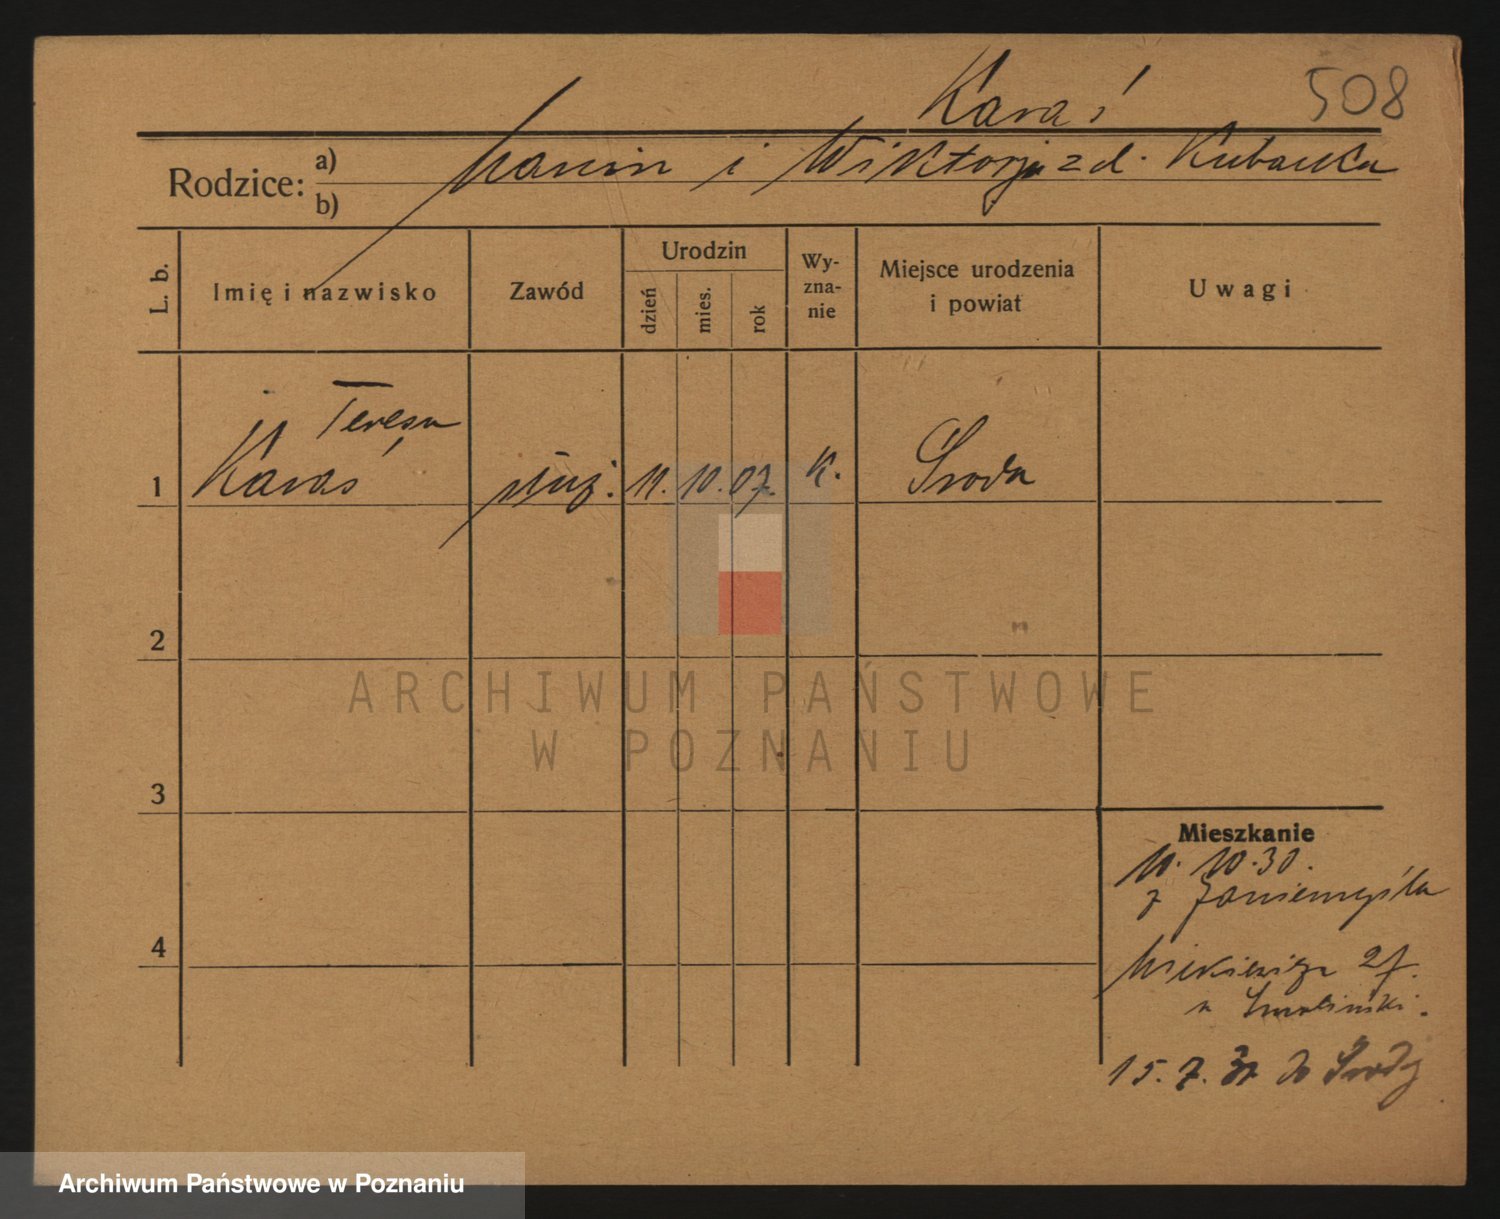 508
Karaś
Rodzice: a) Marcin i Wiktorja z d. Kubacka
b)
L. b. Imię i nazwisko Zawód Urodzin dzień mies. rok Wyznanie Miejsce urodzenia i powiat Uwagi
Teresa
1 Karaś służ. 11. 10. 07. K. Środa
2
ARCHIWUM PAŃSTWOWE
W POZNANIU
3
Mieszkanie
10.30.
z Zaniemyśla
4
Mickiewicza
u Smoliński.
15. 7. 31 do Środy
Archiwum Państwowe w Poznaniu